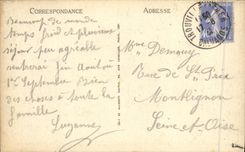 CORRESPONDANCE
ADRESSE
Beaucoup de monde
temps froid et pluvieux
séjour peu agréable
rentrerai fin Août ou
1er Septembre Bien
des choses à toute la
famille
Suzanne
TROUVILLE
Mme Demouy
Rue de St Prix
Montlignon
Seine et Oise